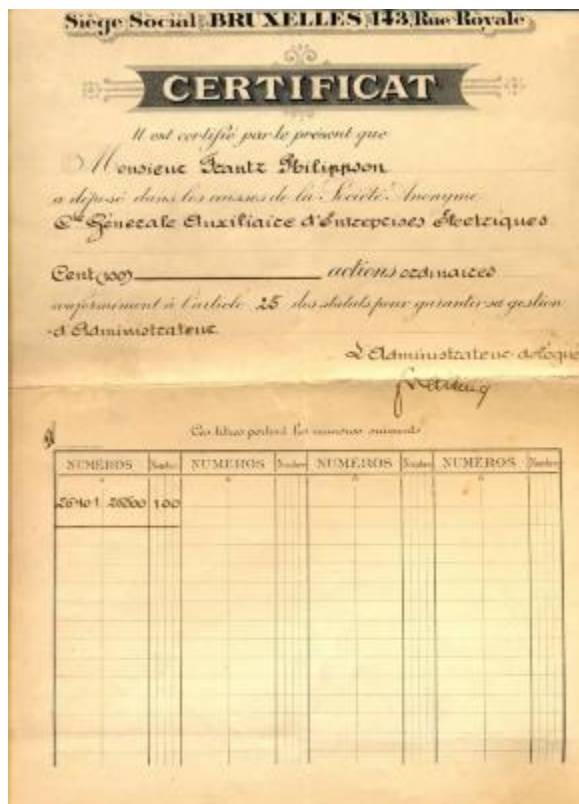 Siège Social, BRUXELLES, 143, Rue Royale
CERTIFICAT
Il est certifié par le présent que
Monsieur Frantz Philippson
a déposé dans les caisses de la Société Anonyme
Cie Générale Auxiliaire d'Entreprises Electriques
Cent (100) actions ordinaires
conformément à l'article 25 des statuts pour garantir sa gestion
d'Administrateur.
L'Administrateur-délégué
Ces titres portent les numéros suivants
NUMÉROS Nombre NUMÉROS Nombre NUMÉROS Nombre NUMÉROS Nombre
26401 100